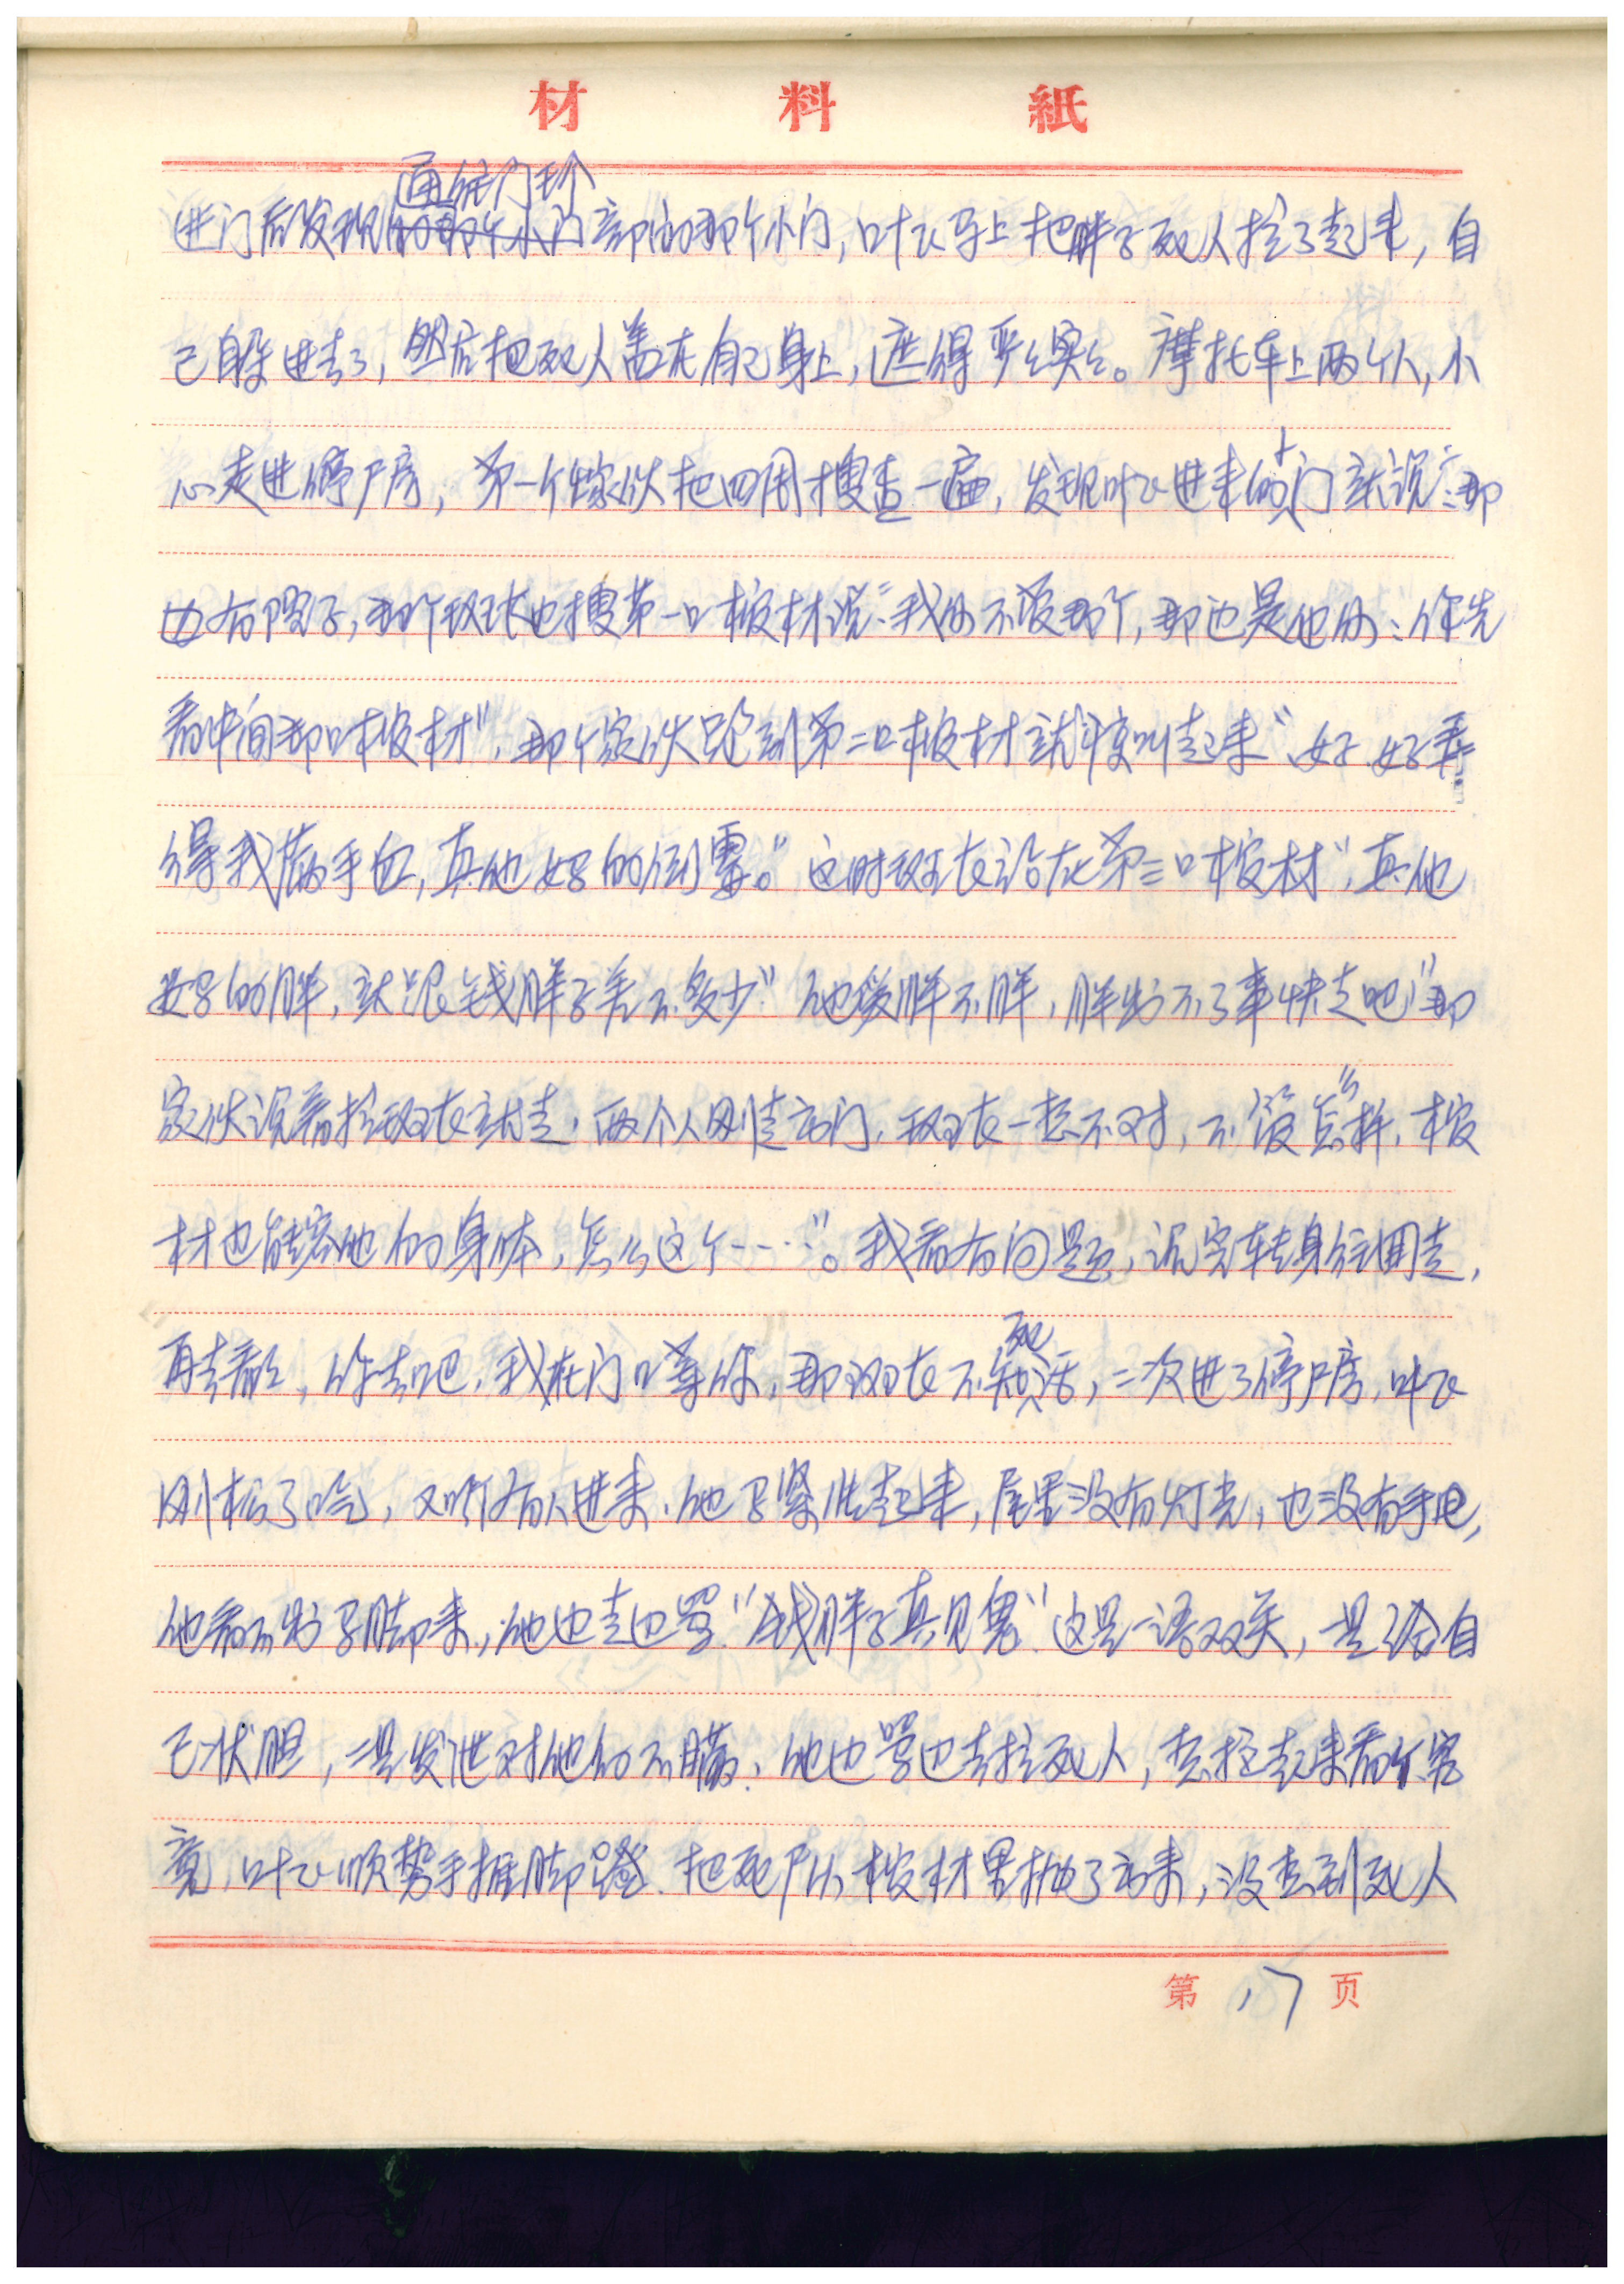 材料紙
通往门珍
进门后发现部的那个小门,叶飞马上把胖子死人拉了起来,自
己自躲进去了,然后把死人盖在自己身上,遮得严々实々。摩托车上两个人,小
心走进停尸房,第一个家伙把四周搜查一遍,发现叶飞进来的小门就说:“那
边有院子,那个班长也搜第一口棺材说:“我们不管那个,那边是他们:你先
看中间那口棺材”,那个家伙跑到第二口棺材就惊叫起来“好,好弄
得我满手血,真他妈的倒霉。”这时班长站在第三口棺材“,真他
妈的胖,就跟钱胖子差不多少”他管胖不胖,胖出不了事快走吧!”那
家伙说着拉班长就走,两个人刚走出门,班长一想不对,不“管怎样,棺
材也能容他的身体,怎么这个……”。我看有问题,说完转身往回走,
再去看々,你去吧,我在门口等你,那班长不知死活,二次进了停尸房,叶飞
刚松了口气,又听有人进来,他又紧张起来,屋里没有灯光,也没有手电,
他看不出马脚来,他边走边骂“钱胖子真见鬼”这是一语双关,一是给自
己状胆,二是发泄对他的不满,他边骂边去拉死人,想拉起来看个究
竟,叶飞顺势手推脚蹬,把死尸从棺材里抽了出来,没想到死人
第17页